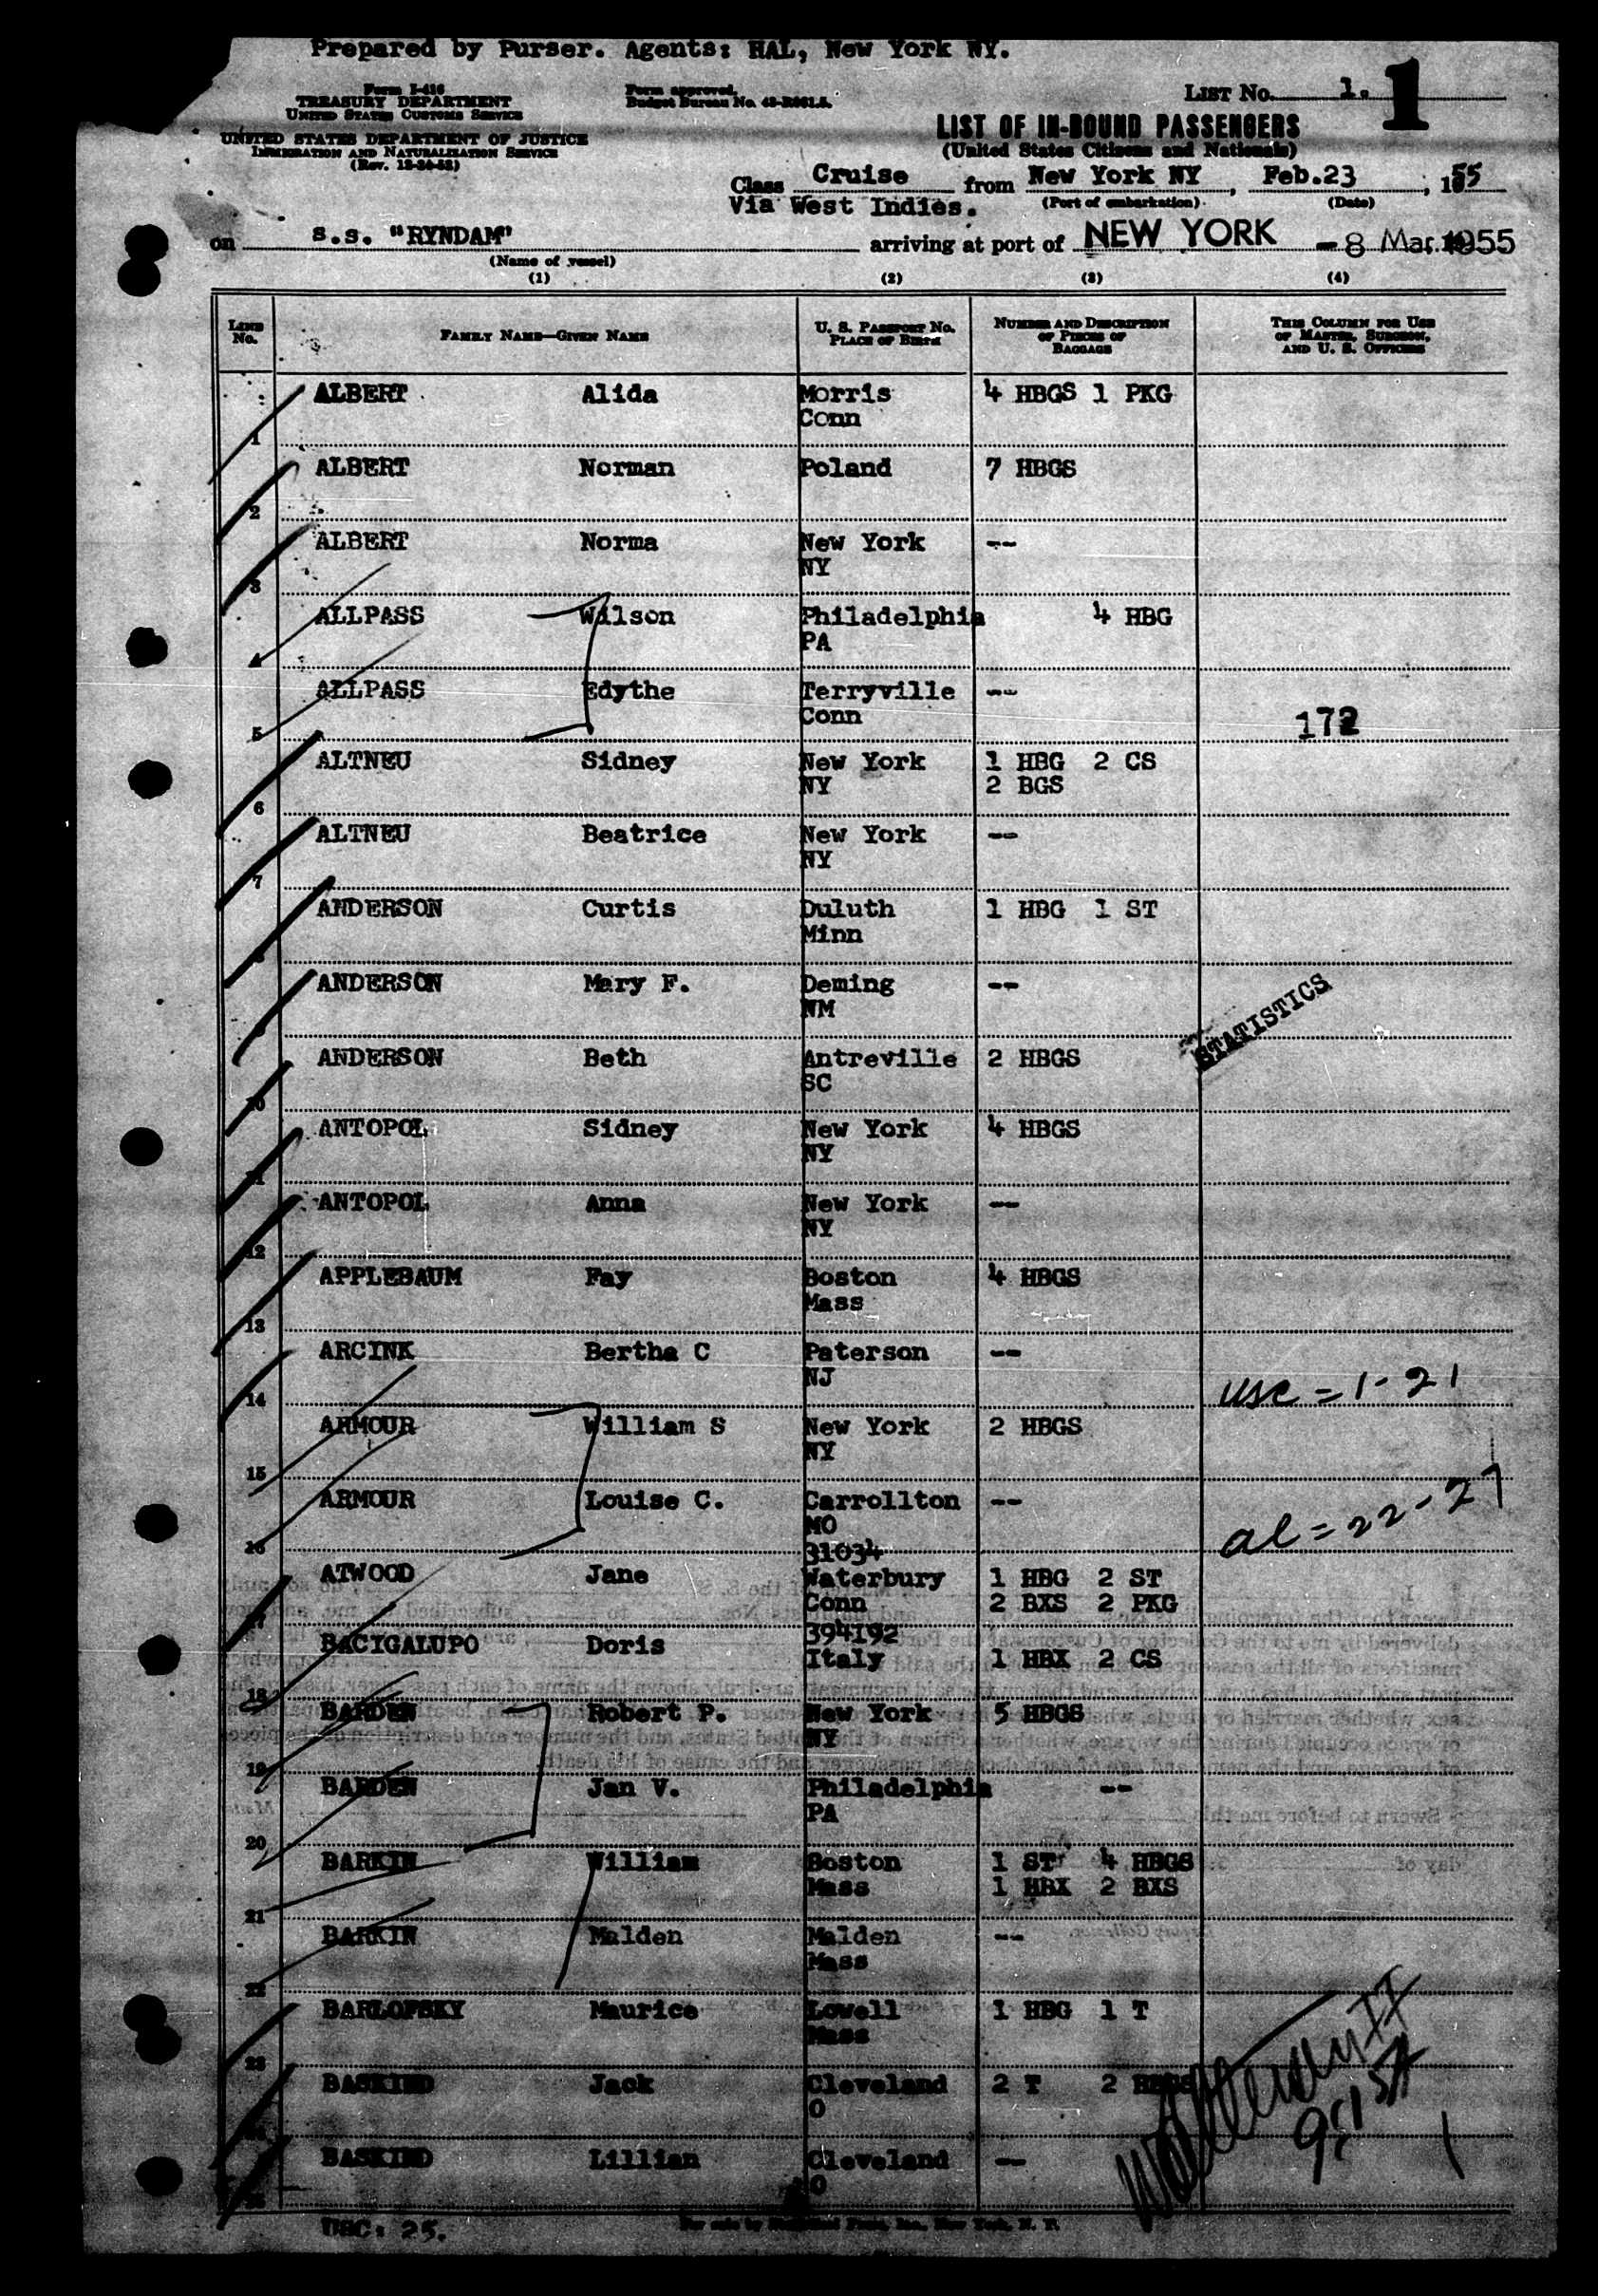 Prepared by Purser. Agents: HAL, New York NY.
Form I-416
TREASURY DEPARTMENT
UNITED STATES CUSTOMS SERVICE
UNITED STATES DEPARTMENT OF JUSTICE
IMMIGRATION AND NATURALIZATION SERVICE
(Rev. 12-30-52)
Form approved.
Budget Bureau No. 43-R361.5.
LIST No. 1. 1
LIST OF IN-BOUND PASSENGERS
(United States Citizens and Nationals)
Class Cruise from New York NY, Feb.23, 1955
Via West Indies. (Port of embarkation) (Date)
on s.s. "RYNDAM" arriving at port of NEW YORK -8 Mar. 1955
(Name of vessel)
(1) (2) (3) (4)
LINE No. FAMILY NAME—GIVEN NAME U. S. PASSPORT No. PLACE OF BIRTH NUMBER AND DESCRIPTION OF PIECES OF BAGGAGE THIS COLUMN FOR USE OF MASTER, SURGEON, AND U. S. OFFICERS
1 ALBERT Alida Morris 4 HBGS 1 PKG
Conn
2 ALBERT Norman Poland 7 HBGS
3 ALBERT Norma New York --
NY
4 ALLPASS Wilson Philadelphia 4 HBG
PA
5 ALLPASS Edythe Terryville --
Conn
172
6 ALTNEU Sidney New York 1 HBG 2 CS
NY 2 BGS
7 ALTNEU Beatrice New York --
NY
8 ANDERSON Curtis Duluth 1 HBG 1 ST
Minn
9 ANDERSON Mary F. Deming --
NM
STATISTICS
10 ANDERSON Beth Antreville 2 HBGS
SC
11 ANTOPOL Sidney New York 4 HBGS
NY
12 ANTOPOL Anna New York --
NY
13 APPLEBAUM Fay Boston 4 HBGS
Mass
14 ARCINK Bertha C Paterson --
NJ
usc = 1-21
15 ARMOUR William S New York 2 HBGS
NY
16 ARMOUR Louise C. Carrollton --
MO
al = 22-27
31034
17 ATWOOD Jane Waterbury 1 HBG 2 ST
Conn 2 BXS 2 PKG
394192
18 BACIGALUPO Doris Italy 1 HBX 2 CS
19 BARDEN Robert P. New York 5 HBGS
NY
20 BARDEN Jan V. Philadelphia --
PA
21 BARKIN William Boston 1 ST 4 HBGS
Mass 1 HBX 2 BXS
22 BARKIN Malden Malden --
Mass
23 BARLOFSKY Maurice Lowell 1 HBG 1 T
Mass
BASKIND Jack Cleveland 2 T 2 HBGS
O
BASKIND Lillian Cleveland --
O
USC: 25.